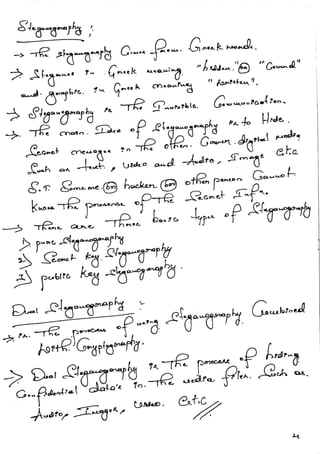 Steganography :
→ The steganography Come from Greek words.
→ Steganos in Greek meaning "hidden" (or) "Covered"
and graphic in Greek meaning "written".
→ Steganography is The Invisible Communication.
→ The main Idea of Steganography is to Hide
Secret message in The other Cover digital media
Such as text, video and Audio, Image etc
S.T. Someone (or) hacker (or) other person Cannot
Know The presense of The Secret Info.
→ There are Three basic types of Steganography
1) pure Steganography
2) Secret key Steganography
3) public key Steganography.
Dual Steganography :-
→ is The process of using Steganography Combined
with Cryptography.
→ Dual Steganography is The process of hiding
Confidential data's in The media files Such as
Audio, Images, video. etc